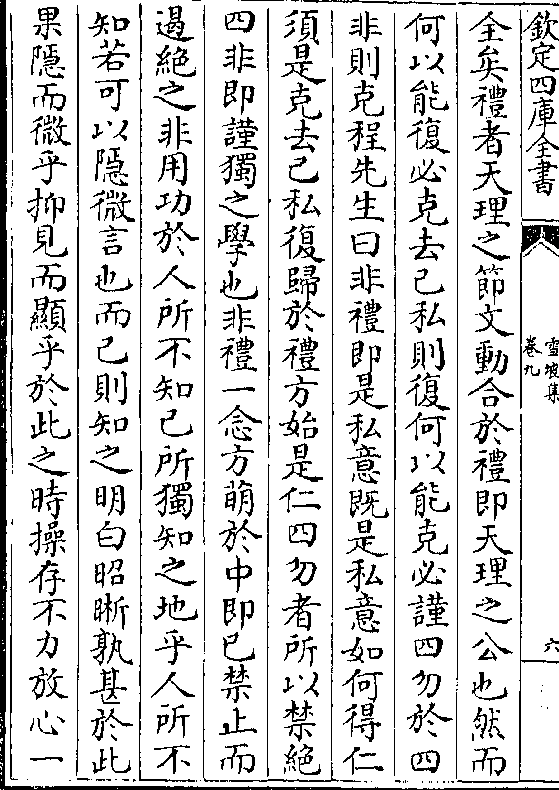 欽定四庫全書
雪坡集
卷九
六
全矣禮者天理之節文動合於禮即天理之公也然而
何以能復必克去己私則復何以能克必謹四勿於四
非則克程先生曰非禮即是私意既是私意如何得仁
須是克去己私復歸於禮方始是仁四勿者所以禁絕
四非即謹獨之學也非禮一念方萌於中即已禁止而
遏絕之非用功於人所不知已所獨知之地乎人所不
知若可以隱微言也而已則知之明白昭晣孰甚於此
果隱而微乎抑見而顯乎於此之時操存不力放心一